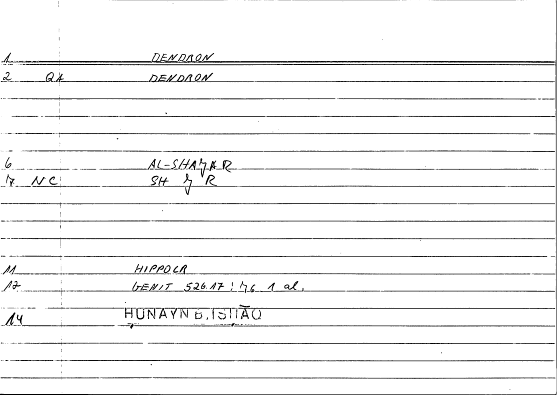 1 DENDRON
2 QA DENDRON
6 AL-SHAJAR
7 NC SH J R
11 HIPPOCR
12 GENIT 526.17; 76 1 al.
14 ḤUNAYN B. ISḤĀQ